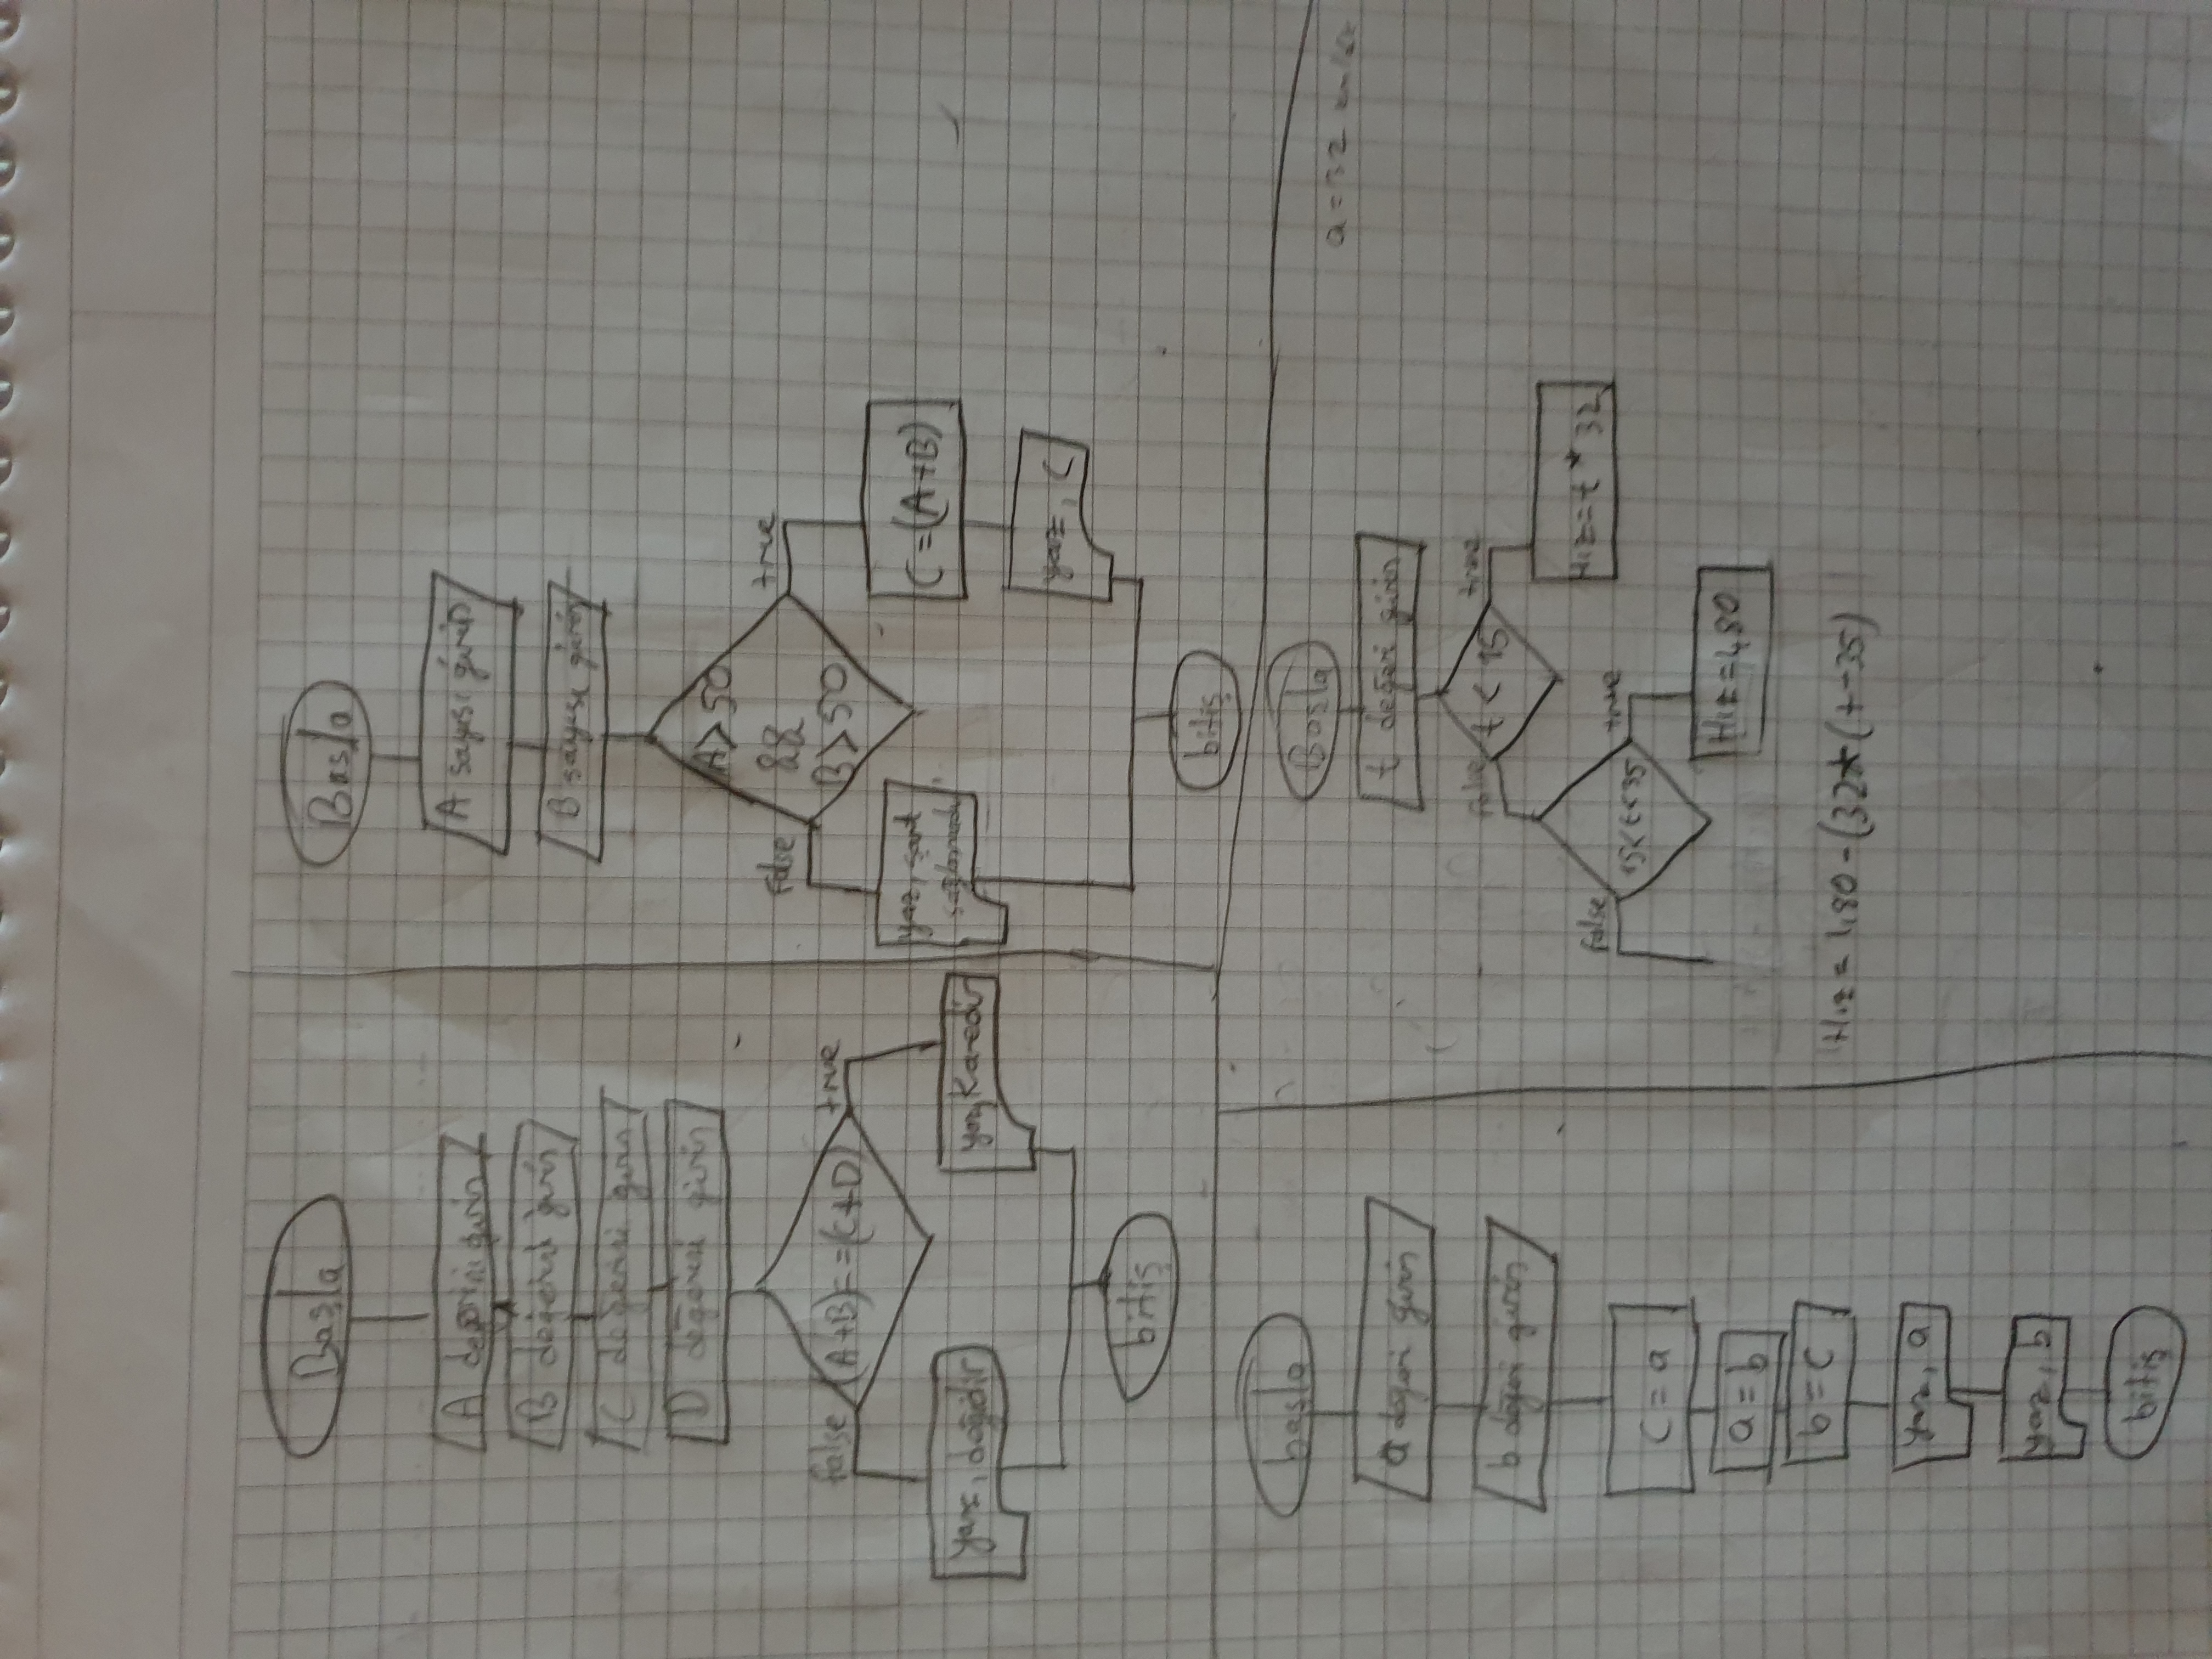 Başla
A değerini girin
B değerini girin
C değerini girin
D değerini girin
(A+B)==(C+D)
false
true
yaz, değildir
yaz, Karedir
bitiş
Başla
A sayısı girin
B sayısı girin
A>50
&&
B>50
false
true
yaz, şart
sağlanmadı
C=(A+B)
yaz, C
bitiş
başla
a değeri girin
b değeri girin
c=a
a=b
b=c
yaz, a
yaz, b
bitiş
a=32
Başla
t değeri girin
t < 15
false
true
Hız=t*32
15<t<35
false
true
Hız=480
Hız = 480-(32*(t-35)